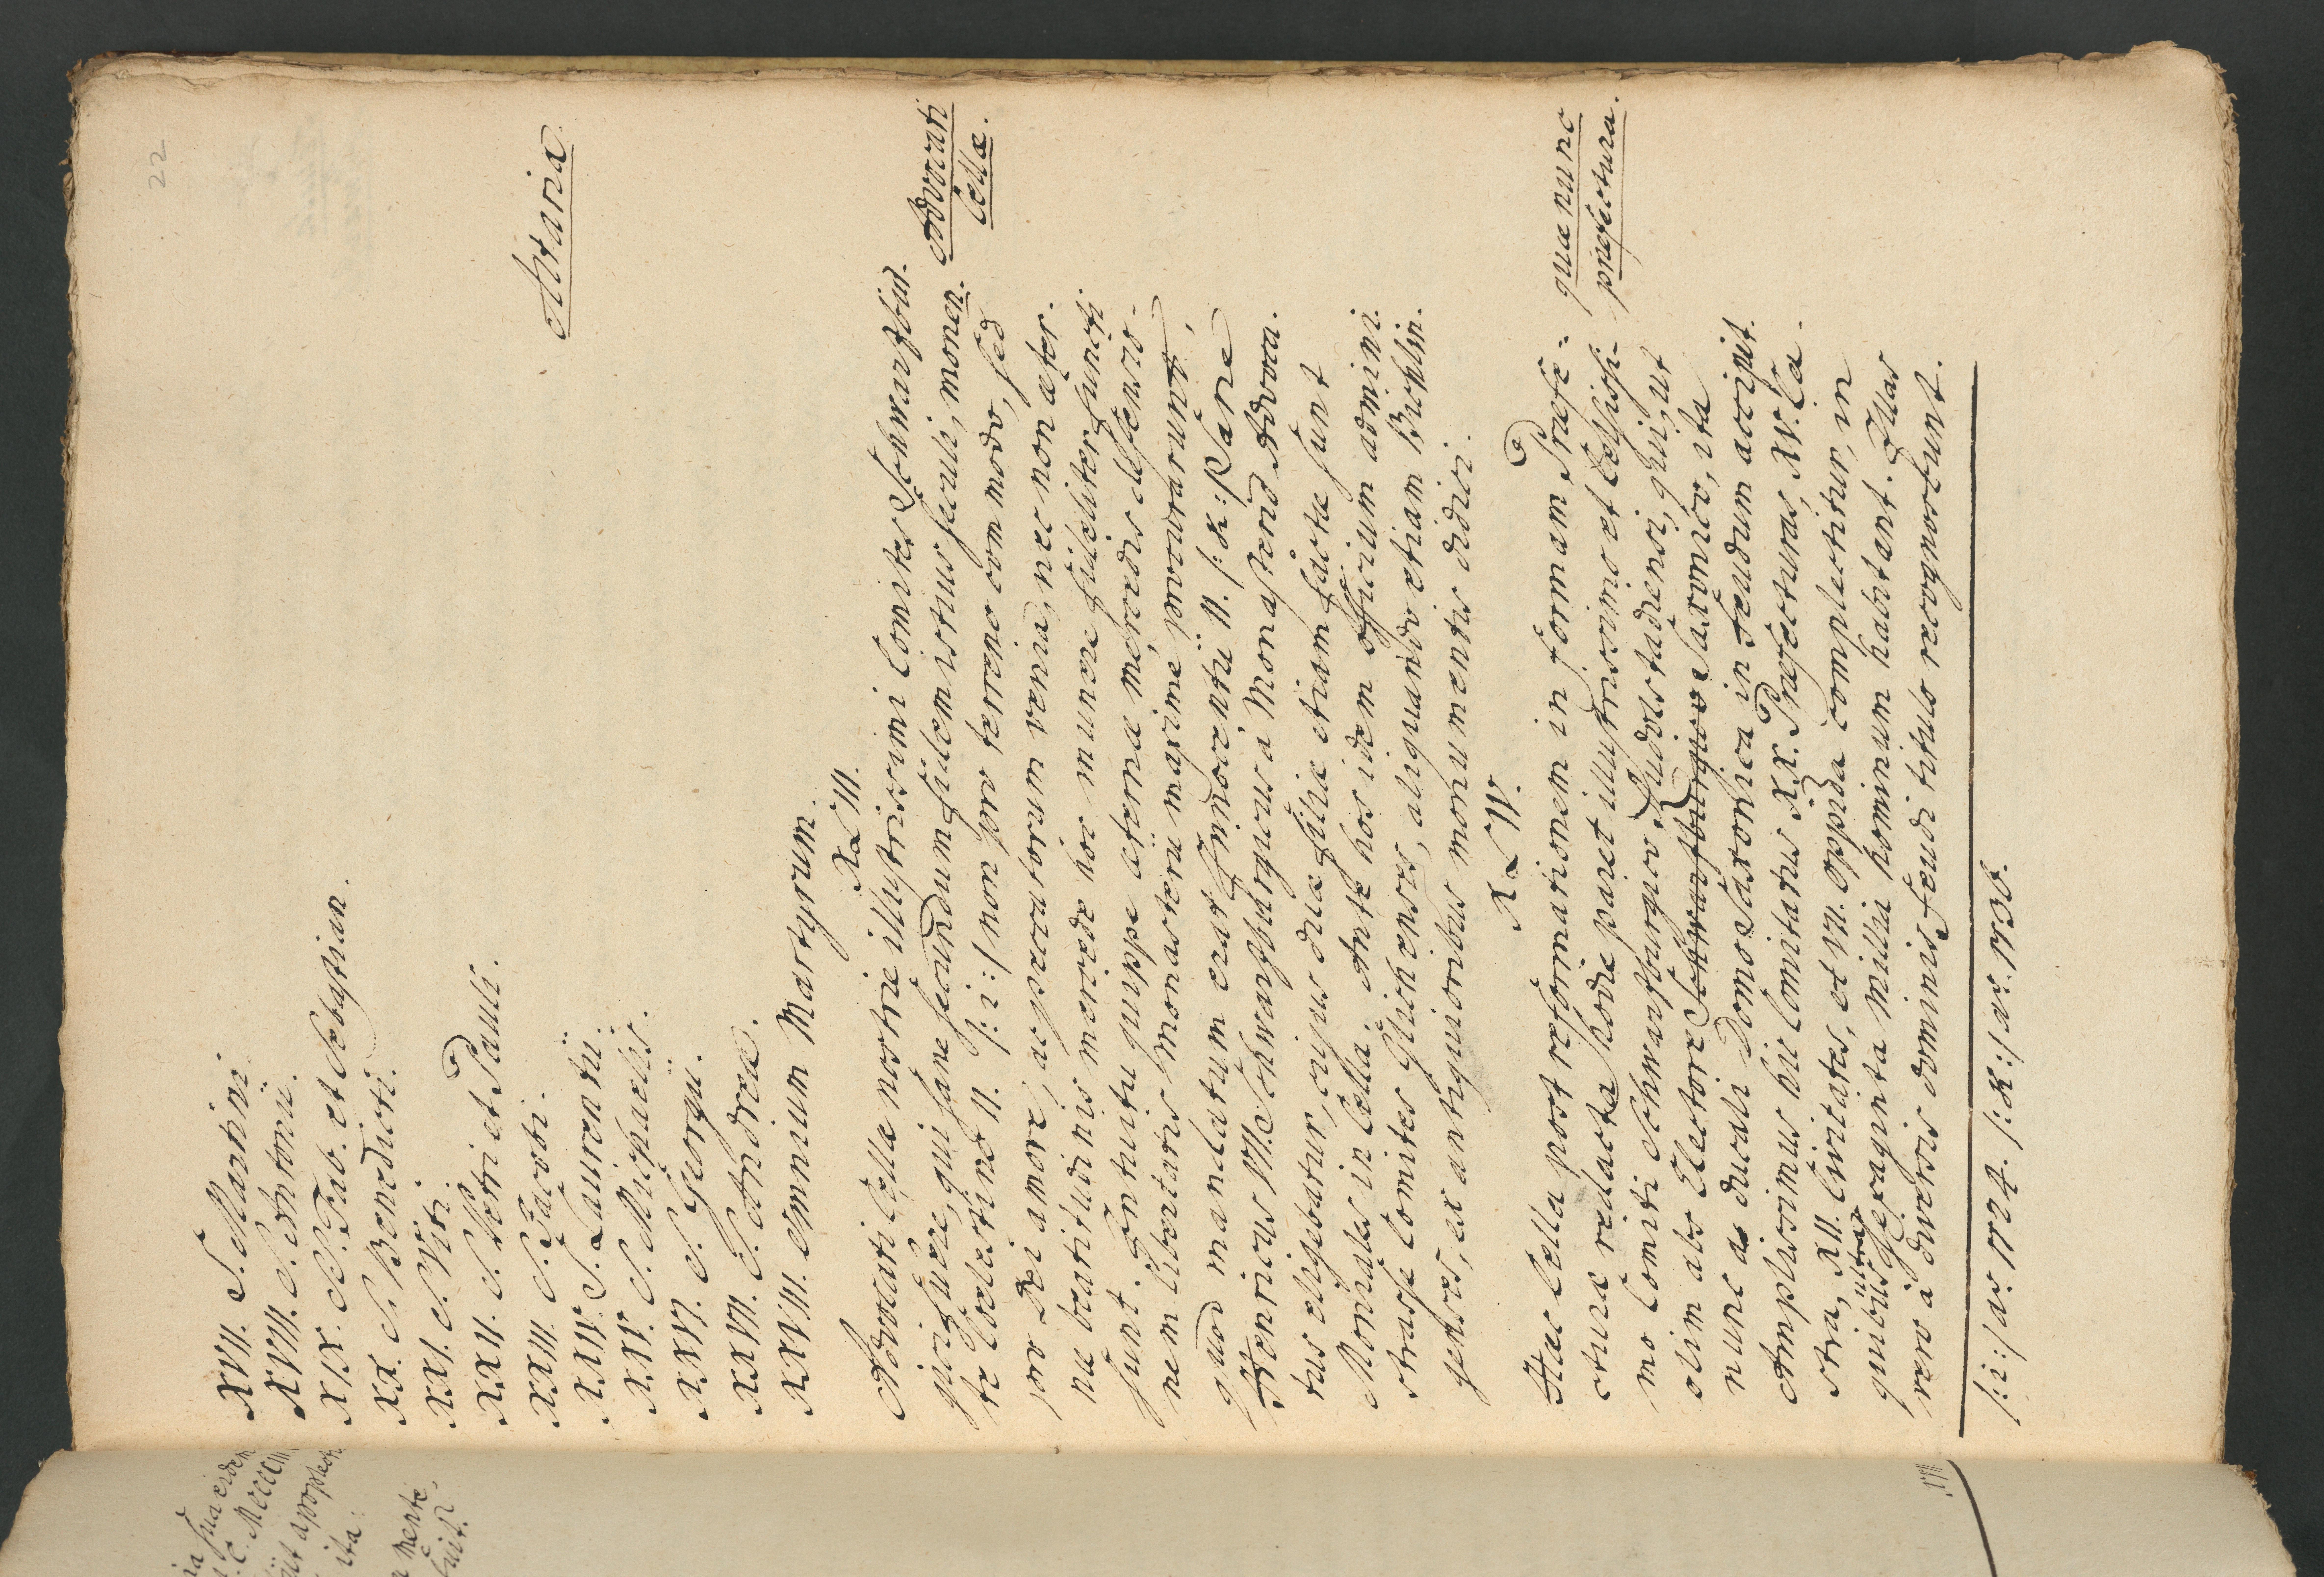 22
XVII. S. Martini.
XVIII. S. Antonii.
XIX. S. Fab. et Sebastian.
XX. S. Benedicti.
XXI. S. Viti.
XXII. S. Petri et Pauli.
XXIII. S. Jacobi.
XXIV. S. Laurentii.
XXV. S. Michaelis.
XXVI. S. Georgii.
XXVII. S. Andreæ.
XXVIII. Omnium Martyrum.
Altaria
XLIII.
Advocati Cellæ nostræ illustrissimi Comites Schwarzbur.
gici fuere, qui sane secundum fidem istius seculi, monen.
te Coelestino II. /: i :/ non pro terreno commodo, sed
pro Dei amore, ac peccatorum venia, nec non æter.
næ beatitudinis mercede hoc munere fideliter functi
sunt. Gentuitu quippe æternæ mercedis defensio-
nem libertatis monasterii maxime procurarunt,
quod mandatum erat Innocentii II. /: k :/ Sane
Henricus VII. Schwarzburgicus a Monasterio Advoca.
tus eligebatur, cujus duæ filiæ etiam factæ sunt
Moniales in Cella. Ante hos idem officium admini.
strasse Comites Glichenses, aliquando etiam Bichlin.
genses, ex antiquioribus monumentis didici.
Advocati
Cellæ.
XLIV.
Hæc Cella post reformationem in formam Præfe-
cturæ redacta hodie paret illustrissimo et Celsissi-
mo Comiti Schwarzburgico Rudolstadiensi, qui, ut
olim abs Electore Schwarzburgico Saxonico, ita
nunc a ducali Domo Saxonica in feudum accipit.
Amplissimus hic Comitatus XX. Præfecturas, XV. Ca
stra, XII. Civitates, et VII. oppida complectitur, in
quibus ultra sexaginta millia hominum habitant. Illas
vero a diversis dominis feudi titulo recognoscunt.
quæ nunc
præfectura.
/: i :/ ao. 1124. /: k :/ ao. 1136.